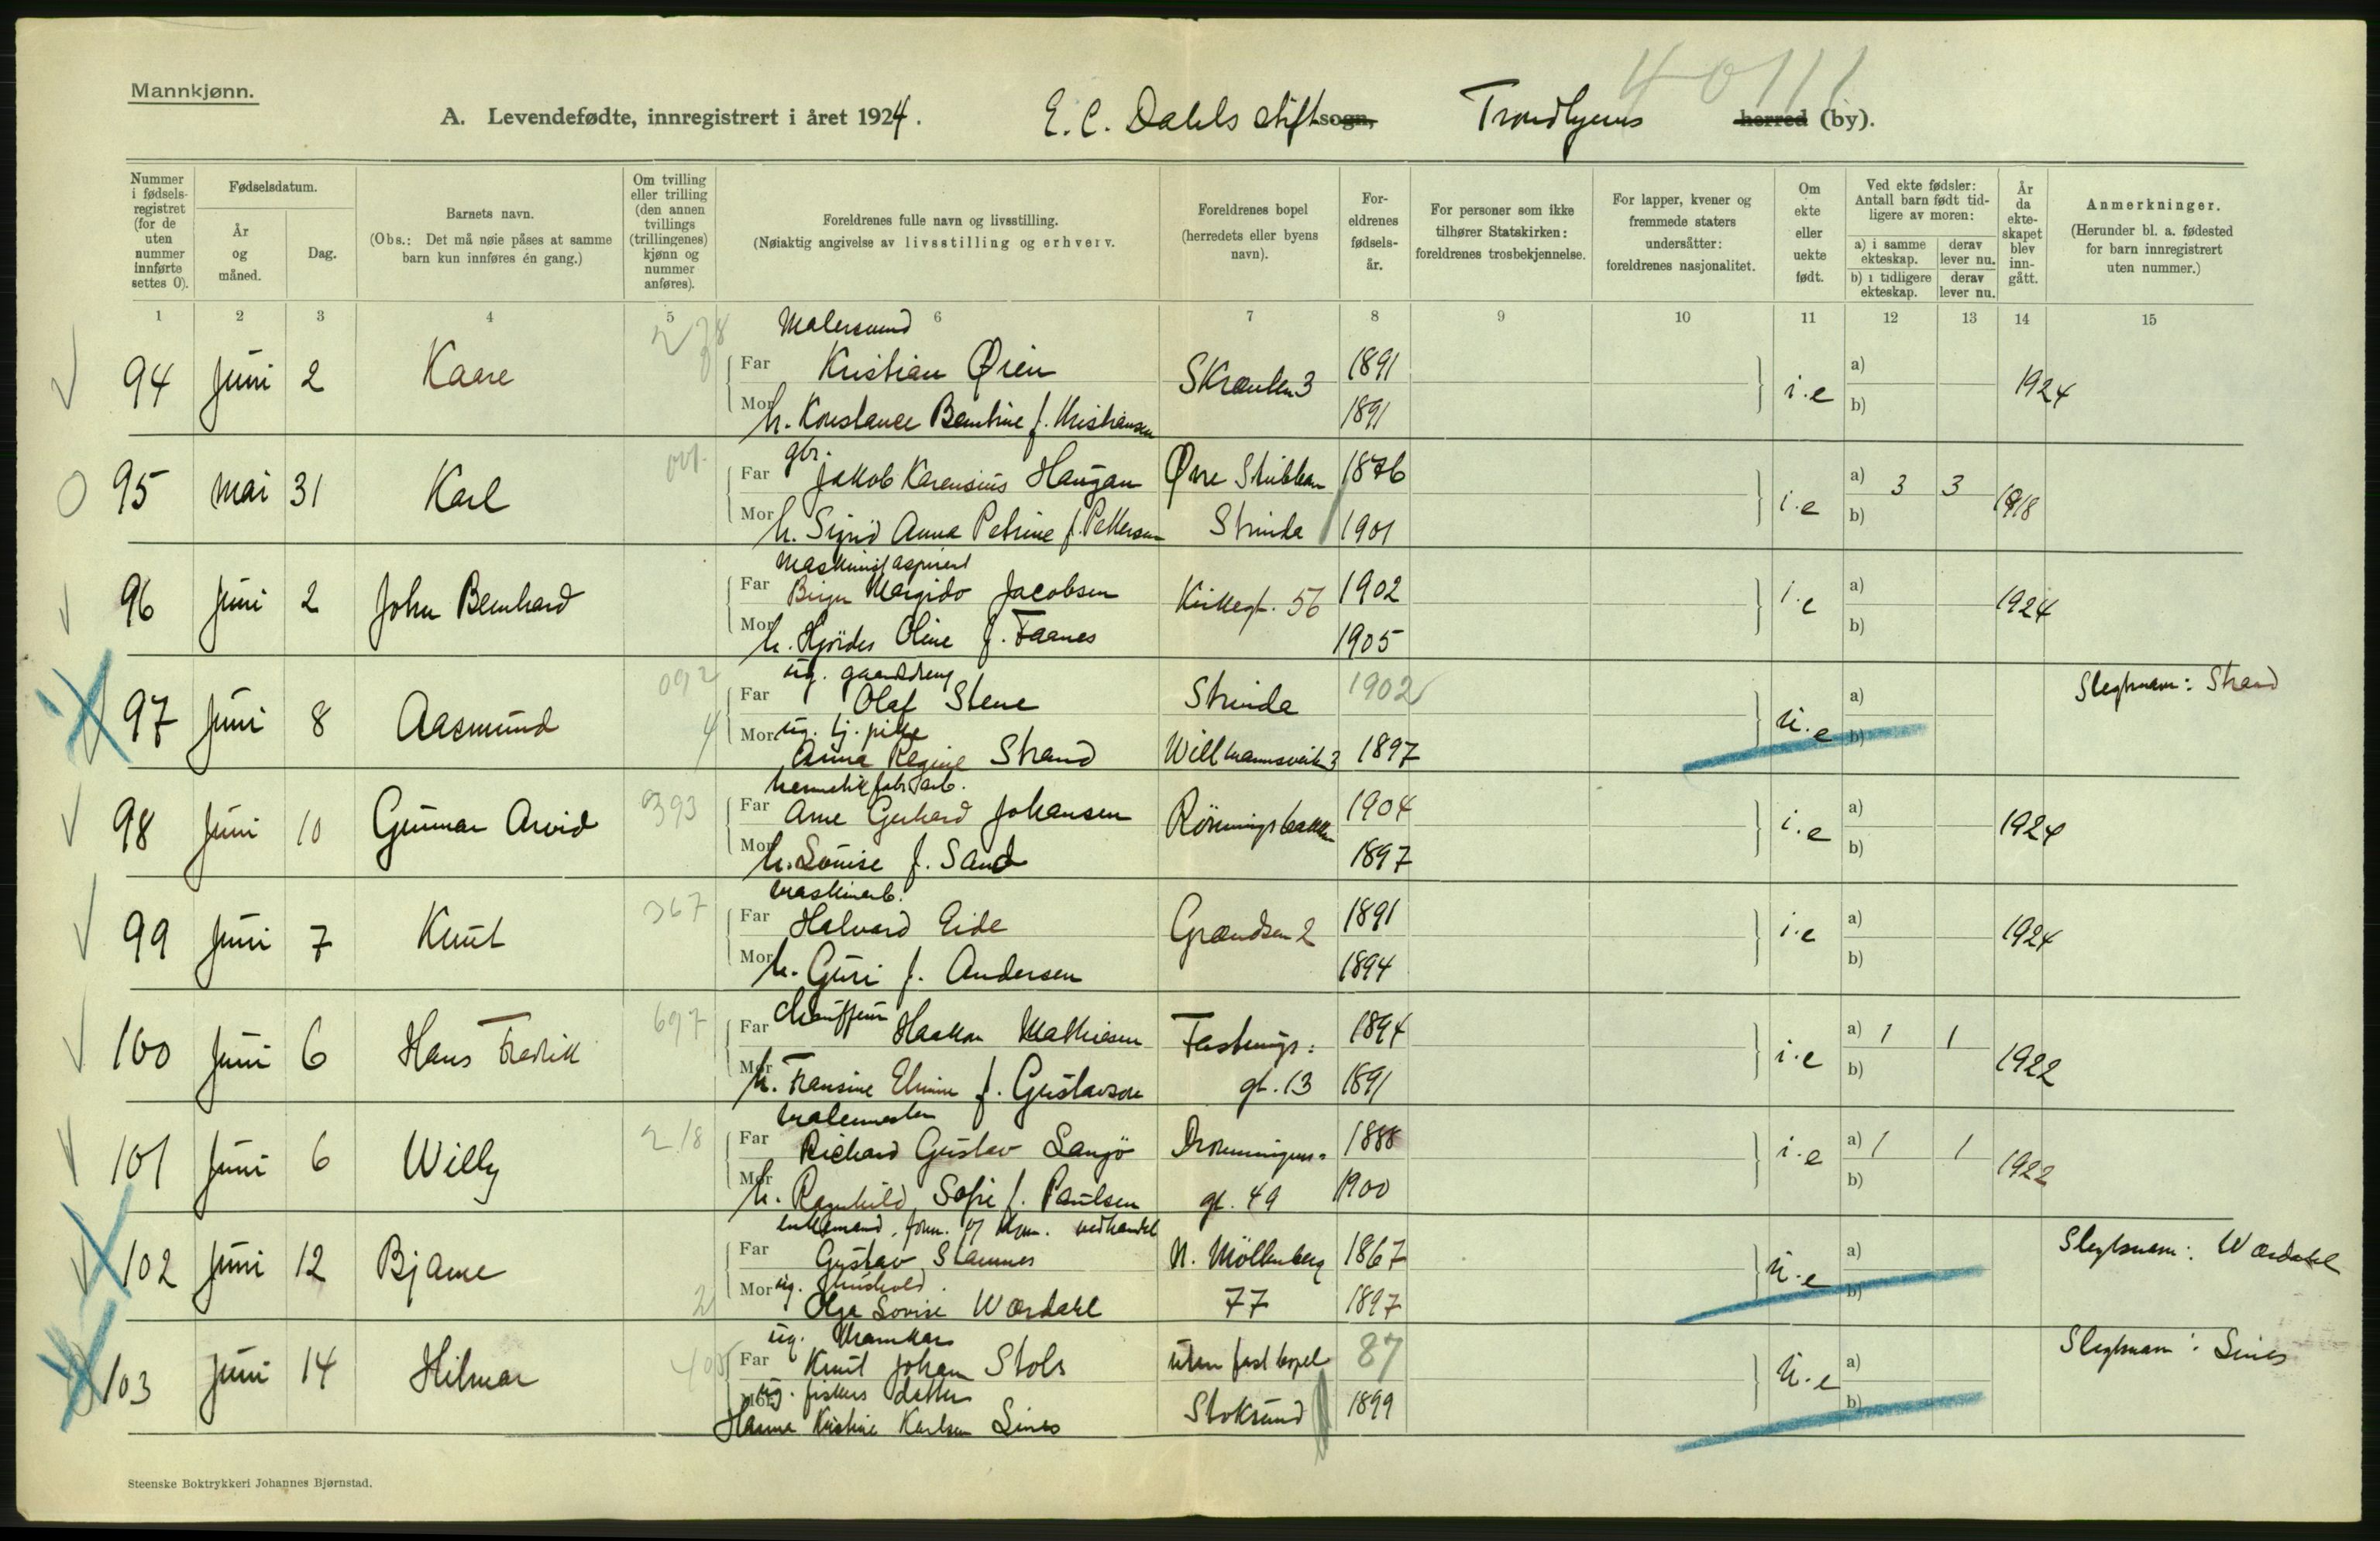 Mannkjønn.
A. Levendefødte, innregistrert i året 1924. E. C. Dahls stiftsogn, Trondhjems herred (by).
4011
Nummer i fødselsregistret (for de uten nummer innførte settes 0).
Fødselsdatum.
År og måned.
Dag.
Barnets navn.
(Obs.: Det må nøie påses at samme barn kun innføres én gang.)
Om tvilling eller trilling (den annen tvillings (trillingenes) kjønn og nummer anføres).
Foreldrenes fulle navn og livsstilling.
(Nøiaktig angivelse av livsstilling og erhverv.
Foreldrenes bopel (herredets eller byens navn).
Foreldrenes fødselsår.
For personer som ikke tilhører Statskirken: foreldrenes trosbekjennelse.
For lapper, kvener og fremmede staters undersåtter: foreldrenes nasjonalitet.
Om ekte eller uekte født.
Ved ekte fødsler: Antall barn født tidligere av moren:
a) i samme ekteskap.
derav lever nu.
b) i tidligere ekteskap.
derav lever nu.
År da ekteskapet blev inngått.
Anmerkninger.
(Herunder bl. a. fødested for barn innregistrert uten nummer.)
1 2 3 4 5 6 7 8 9 10 11 12 13 14 15
Malersvend
94 Juni 2 Kaare Far Kristian Øien 1891 a)
Skrænten 3 i.e 1924
Mor h. Konstance Berntine f. Kristiansen 1891 b)
gbr.
95 mai 31 Karl Far Jakob Karensius Haugan Øvre Stubban 1876 a) 3 3
i.e 1918
Mor h. Sigrid Anna Petrine f. Pettersen Strinda 1901 b)
Maskinistaspirant
96 Juni 2 John Bernhard Far Birger Margido Jacobsen Kirkegt. 56 1902 a)
i.e 1924
Mor h. Hjördes Oline f. Faanes 1905 b)
092
ug. gaardsdreng
97 Juni 8 Aasmund Far Olaf Stene Strinda 1902 a) Slegtsnavn: Strand
4 u.e
Mor ug. tj. pike
Anna Regine Strand Willmannsveita 3 1897 b)
hermetikfabr.arb.
98 Juni 10 Gunnar Arvid 393 Far Arne Gerhard Johansen Rönningsbakken 1904 a)
i.e 1924
Mor h. Louise f. Sand 1897 b)
maskinarb.
99 Juni 7 Knut 367 Far Halvard Eide Grændsen 2 1891 a)
i.e 1924
Mor h. Guri f. Andersen 1894 b)
chauffeur
100 Juni 6 Hans Fredrik 697 Far Haakon Mathiesen Fastings: 1894 a) 1 1
i.e 1922
Mor h. Fransine Elmine f. Gustavson gt. 13 1891 b)
malermester
101 Juni 6 Willy 218 Far Richard Gustav Langö Dronningens- 1888 a) 1 1
i.e 1922
Mor h. Ragnhild Sofie f. Paulsen gt. 49 1900 b)
enkemand, vedhandel
102 Juni 12 Bjarne Far Gustav Stamnes N. Möllenberg 1867 a) Slegtsnavn: Wærdahl
2 u.e
Mor ug. hushold.
Olga Lovise Wærdahl 77 1897 b)
ug.
103 Juni 14 Hilmar 405 Far Knut Johan Stols uten fast bopel 87 a) Slegtsnavn: Lines
u.e
Mor ug. fiskers datter
Hanna Kristine Karlsen Lines Stoksund 1899 b)
Steenske Boktrykkeri Johannes Bjørnstad.